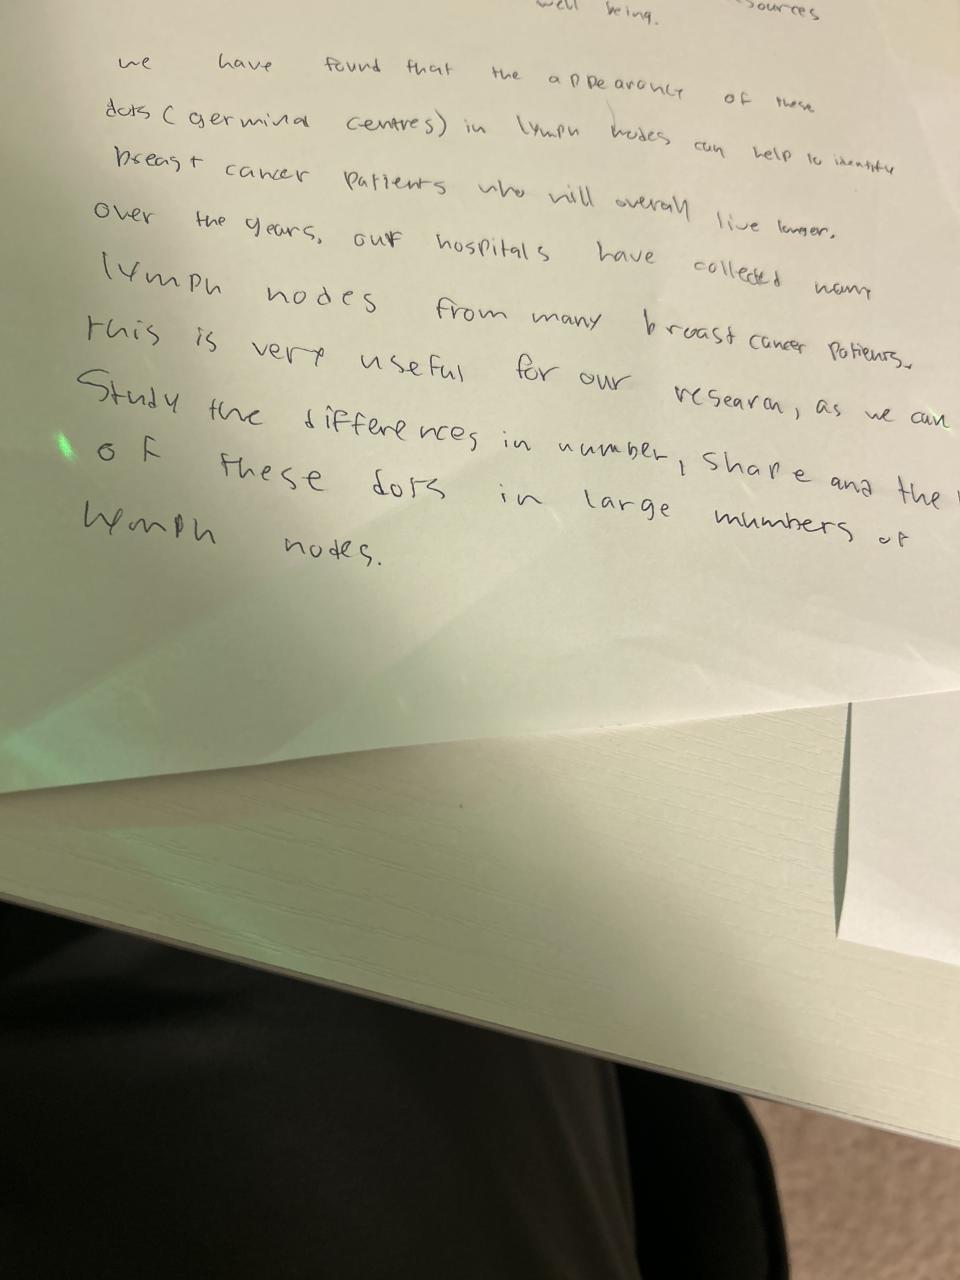 sources
well being.
we have found that the appearance of these
dots (germinal centres) in lymph nodes can help to identify
breast cancer patients who will overall live longer.
over the years, our hospitals have collected many
lymph nodes from many breast cancer patients.
this is very useful for our research, as we can
Study the differences in number, shape and the
of these dots in large mumbers of
lymph nodes.